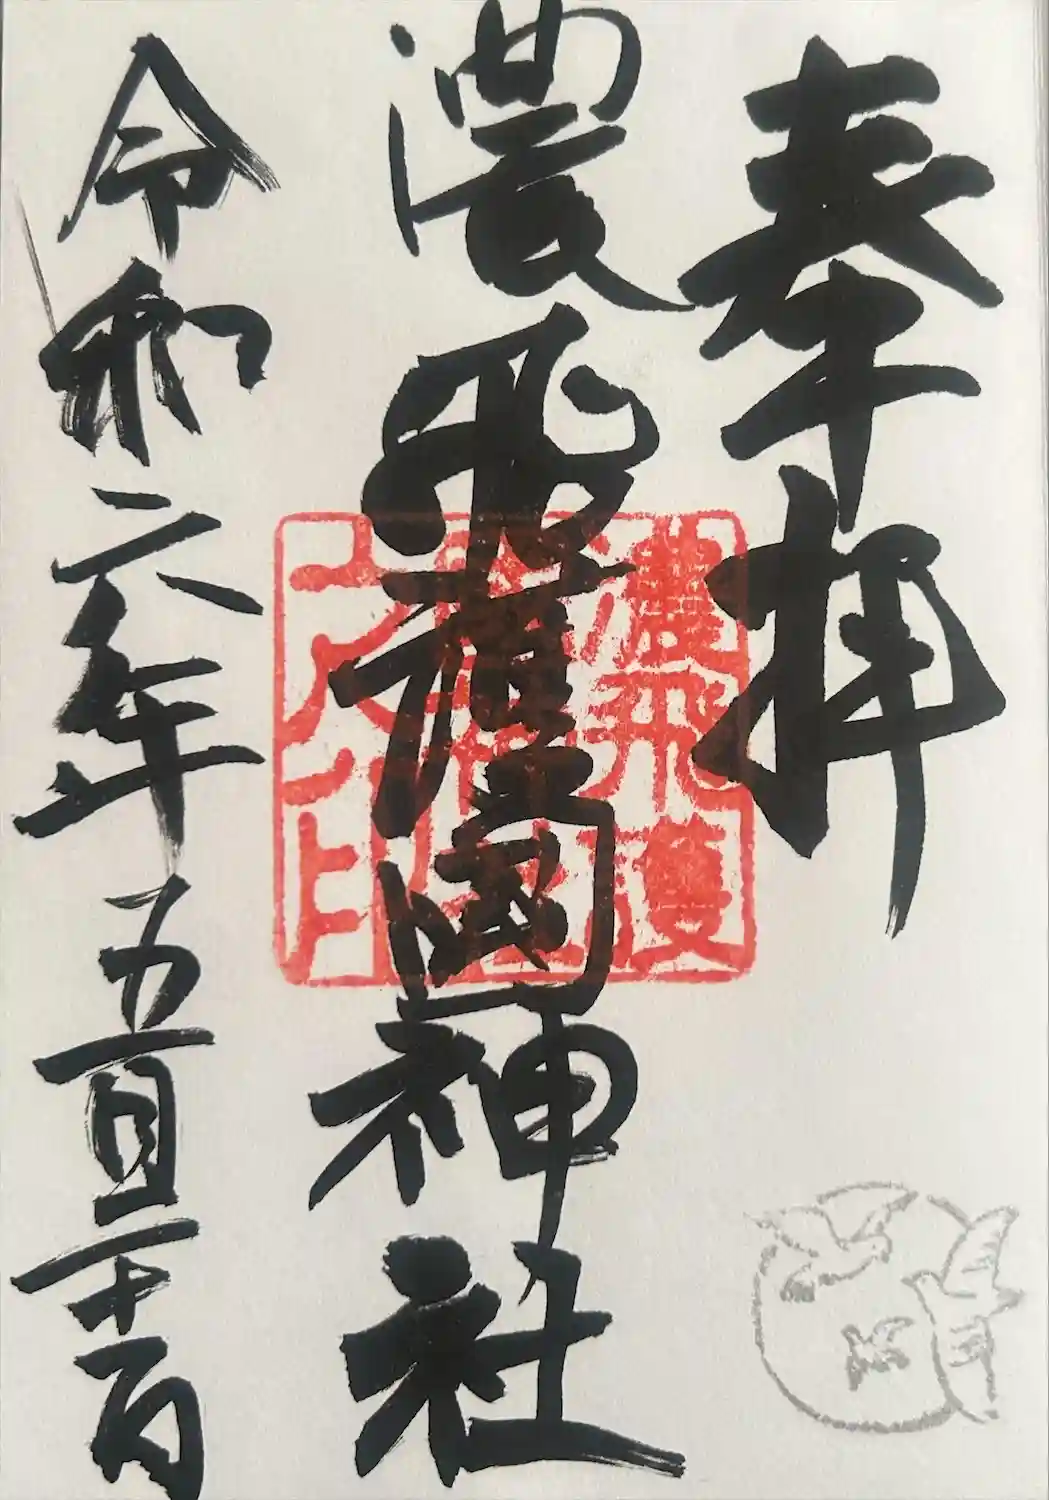 奉拝
濃飛護國神社
令和六年五月二十一日
濃飛護
國神社
之印